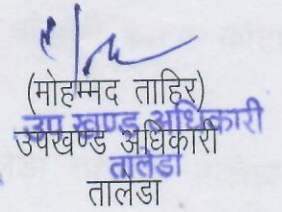 (मोहम्मद ताहिर)
उप खण्ड अधिकारी
उपखण्ड अधिकारी
तालेडा
तालेडा